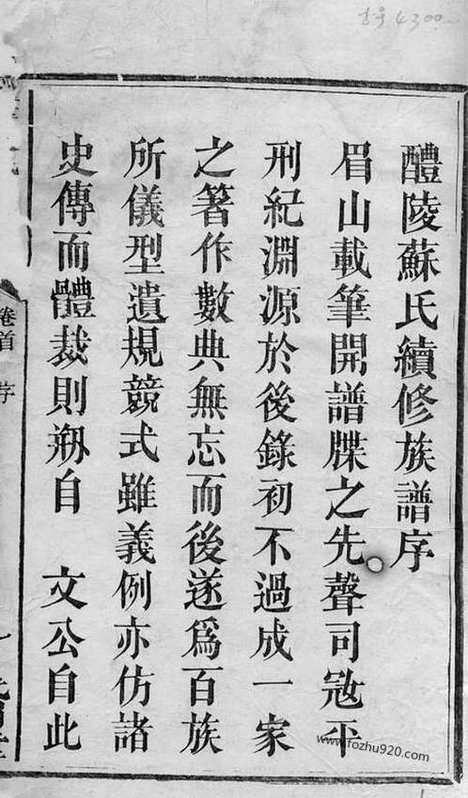 醴陵蘇氏續修族譜序
眉山載筆開譜牒之先聲司寇平
刑紀淵源於後錄初不過成一家
之著作數典無忘而後遂爲百族
所儀型遺規競式雖義例亦仿諸
史傳而體裁則刱自　文公自此
卷首　序
4300
www.fozhu920.com